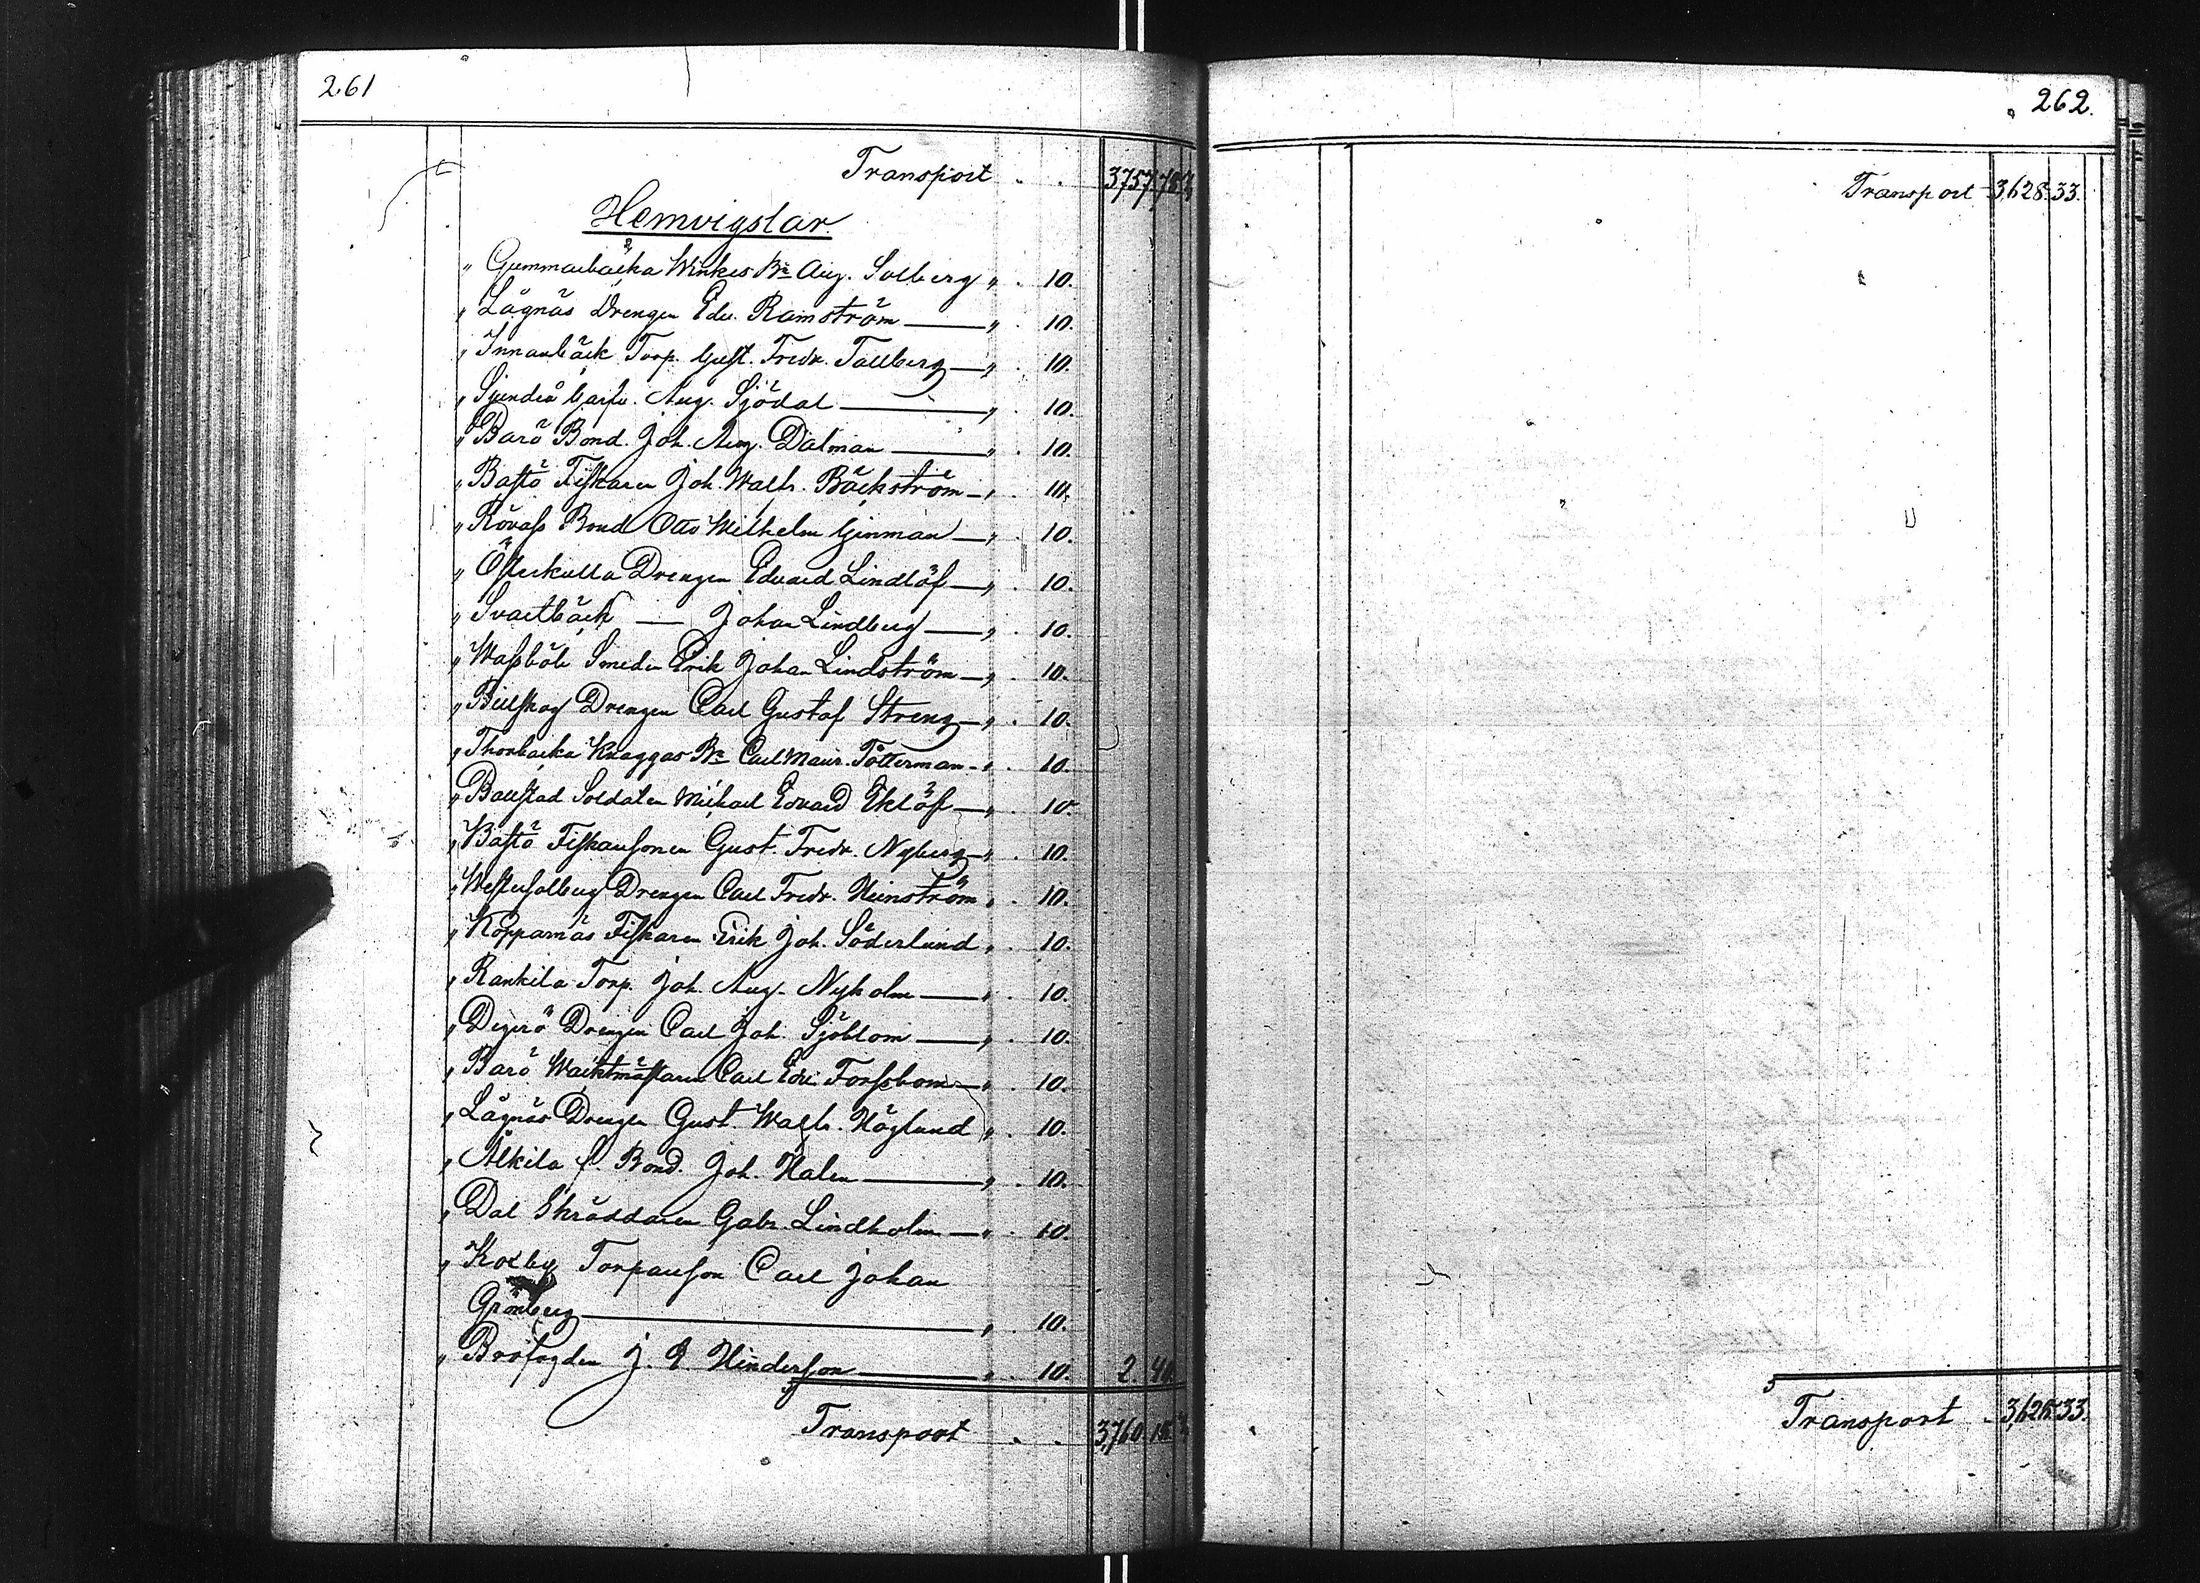 261
Transport . . 3757. 78
Hemvigslar.
" Gummarbäcka Winkes Bn Aug. Solberg " . 10.
" Lågnäs Drengen Edv. Ramström — " . 10.
" Innanbäck Torp. Gust. Fredr. Tallberg — " . 10.
" Sjundeå Aug. Sjödal — " . 10.
" Barö Bond. Joh. Aug. Dalman — " . 10.
" Bastö Fiskaren Joh. Walfr. Bäckström — " . 10.
" Rövass Bond Otto Wilhelm Ginman — " . 10.
" Österkulla Drengen Edvard Lindlöf — " . 10.
" Svartbäck — Johan Lindberg — " . 10.
" Wassböle Smeden Erik Johan Lindström — " . 10.
" Billskog Drengen Carl Gustaf Streng — " . 10.
" Thorbacka Knaggas Bn Carl Maur. Tötterman - " . 10.
" Ballstad Soldaten Michael Edvard Eklöf — " . 10.
" Bastö Fiskarsonen Gust. Fredr. Nyberg — " . 10.
" Westersolberg Drengen Carl Fredr. Heinström " . 10.
" Kopparnäs Fiskaren Erik Joh. Söderlund " . 10.
" Rankila Torp. Joh. Aug. Nyholm — " . 10.
" Degerö Drengen Carl Joh. Sjöblom — " . 10.
" Barö Wacktmästaren Carl Edv. Forssbom — " . 10.
" Lågnäs Drengen Gust. Walfr. Höglund " . 10.
" Älkila f. Bond. Joh. Halen — " . 10.
" Dal Skräddaren Gabr. Lindholm — " . 10.
" Kocby Torparson Carl Johan
Grönberg — " . 10.
" Brofogden J. E. Hindersson — " . 10. 2. 40
Transport . . 3,760. 18
262.
Transport 3,628. 33.
Transport . 3,628. 33.